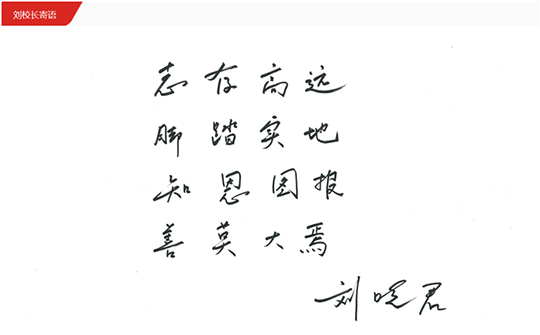 刘校长寄语
志存高远
脚踏实地
知恩图报
善莫大焉
刘晓君